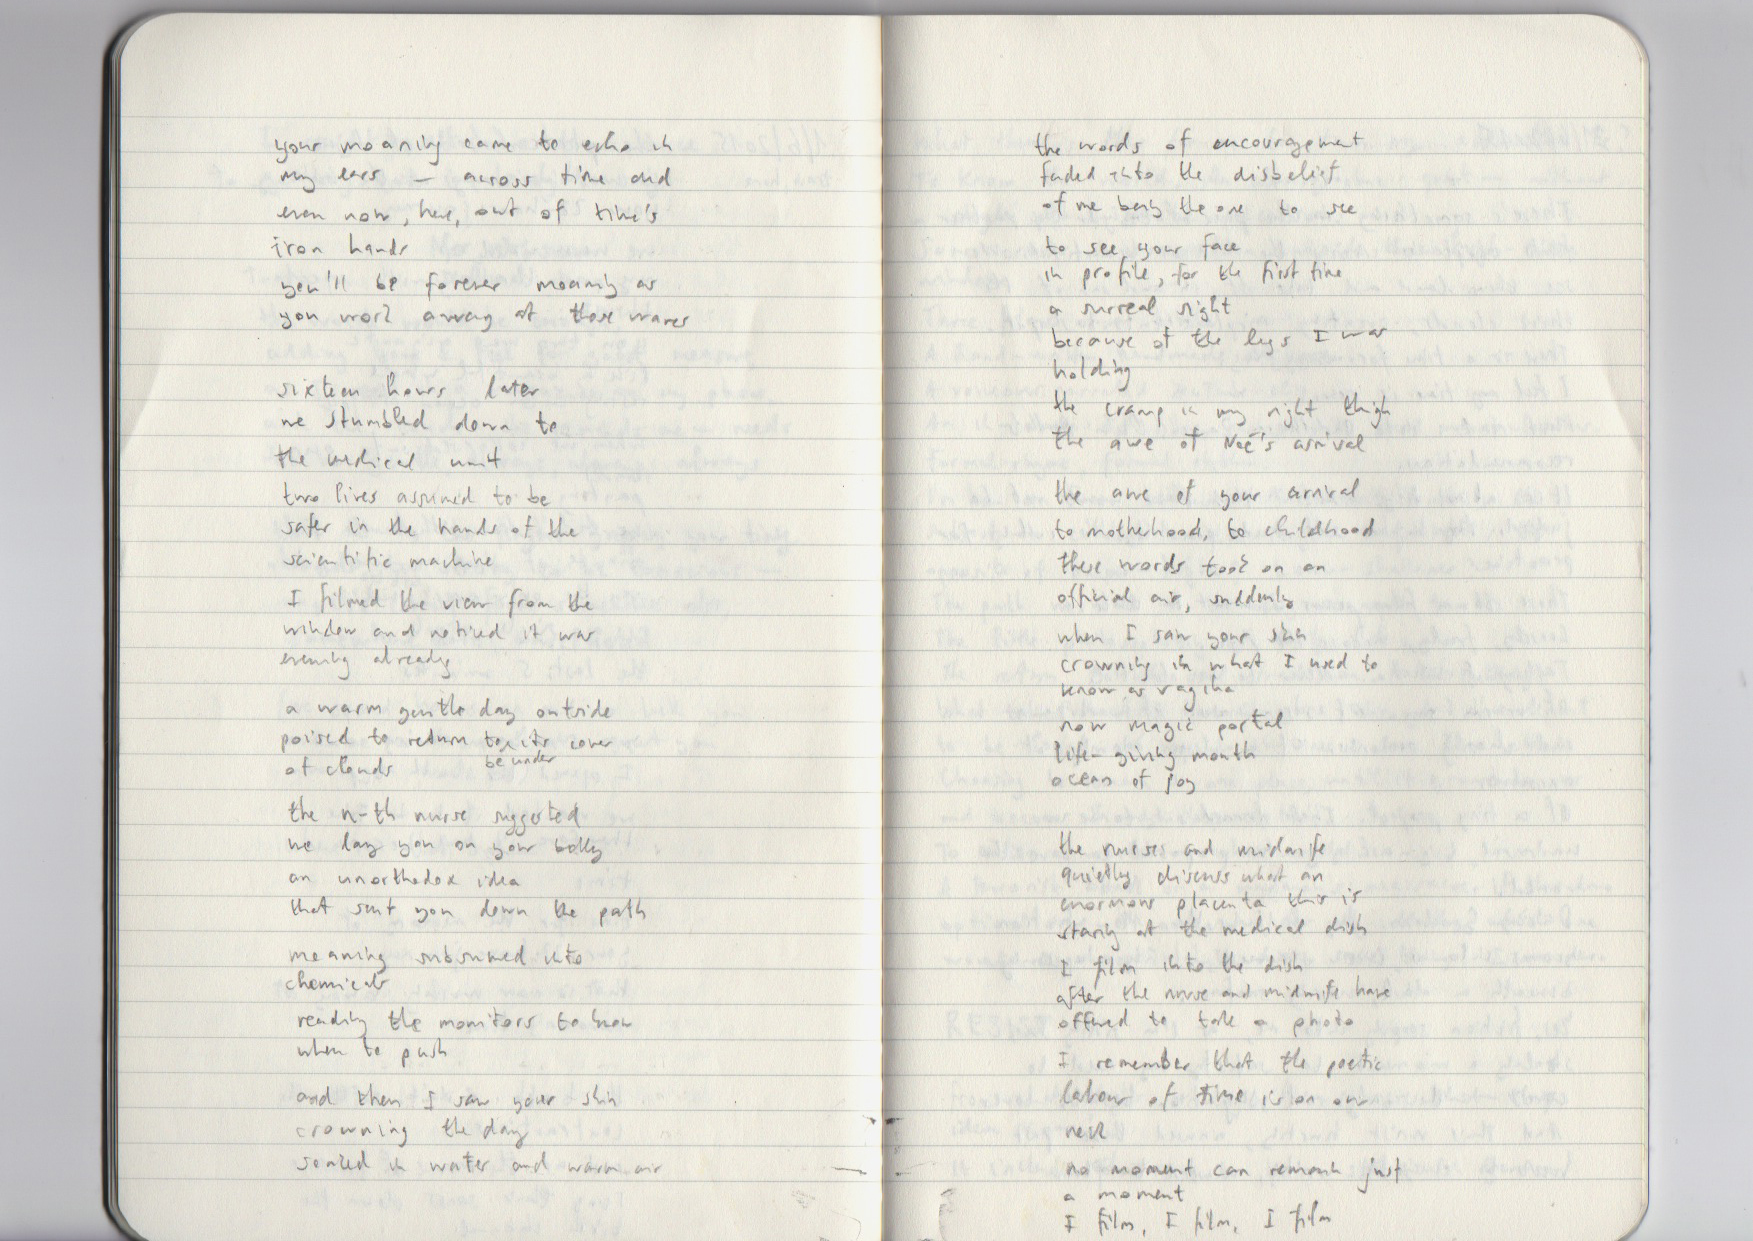 your moaning came to echo in
my ears — across time and
even now, here, out of time's
iron hands
you'll be forever moaning as
you work away at those waves
sixteen hours later
we stumbled down to
the medical unit
two lives assumed to be
safer in the hands of the
scientific machine
I filmed the view from the
window and noticed it was
evening already
a warm gentle day outside
poised to return to its cover
be under
of clouds
the n-th nurse suggested
we lay you on your belly
an unorthodox idea
that sent you down the path
meaning subsumed into
chemicals
reading the monitors to know
when to push
and then I saw your skin
crowning the day
soaked in water and warm air
the words of encouragement
faded into the disbelief
of me being the one to see
to see your face
in profile, for the first time
a surreal sight
because of the legs I was
holding
the cramp in my right thigh
the awe of Noé's arrival
the awe of your arrival
to motherhood, to childhood
these words took on an
official air, suddenly
when I saw your skin
crowning in what I used to
know as vagina
now magic portal
life-giving mouth
ocean of joy
the nurses and midwife
quietly discuss what an
enormous placenta this is
staring at the medical dish
I film into the dish
after the nurse and midwife have
offered to take a photo
I remember that the poetic
labour of time is on our
neck
no moment can remain just
a moment
I film, I film, I film